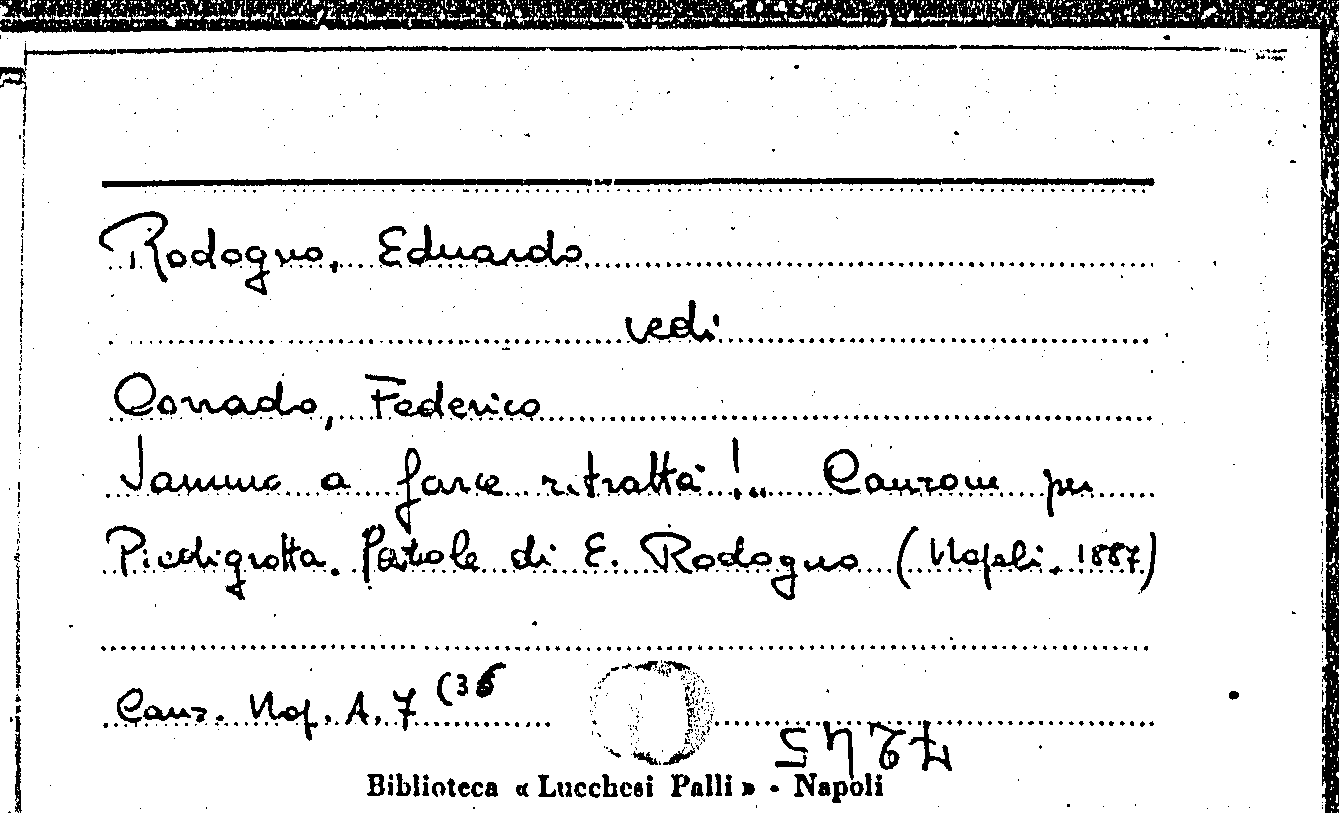 Rodogno, Eduardo
vedi
Corrado, Federico
Jammo a farce ritrattà!.. Canzone per
Piedigrotta. Parole di E. Rodogno (Napoli. 1887)
Canz. Nap. A. 7 (36
Biblioteca « Lucchesi Palli » - Napoli